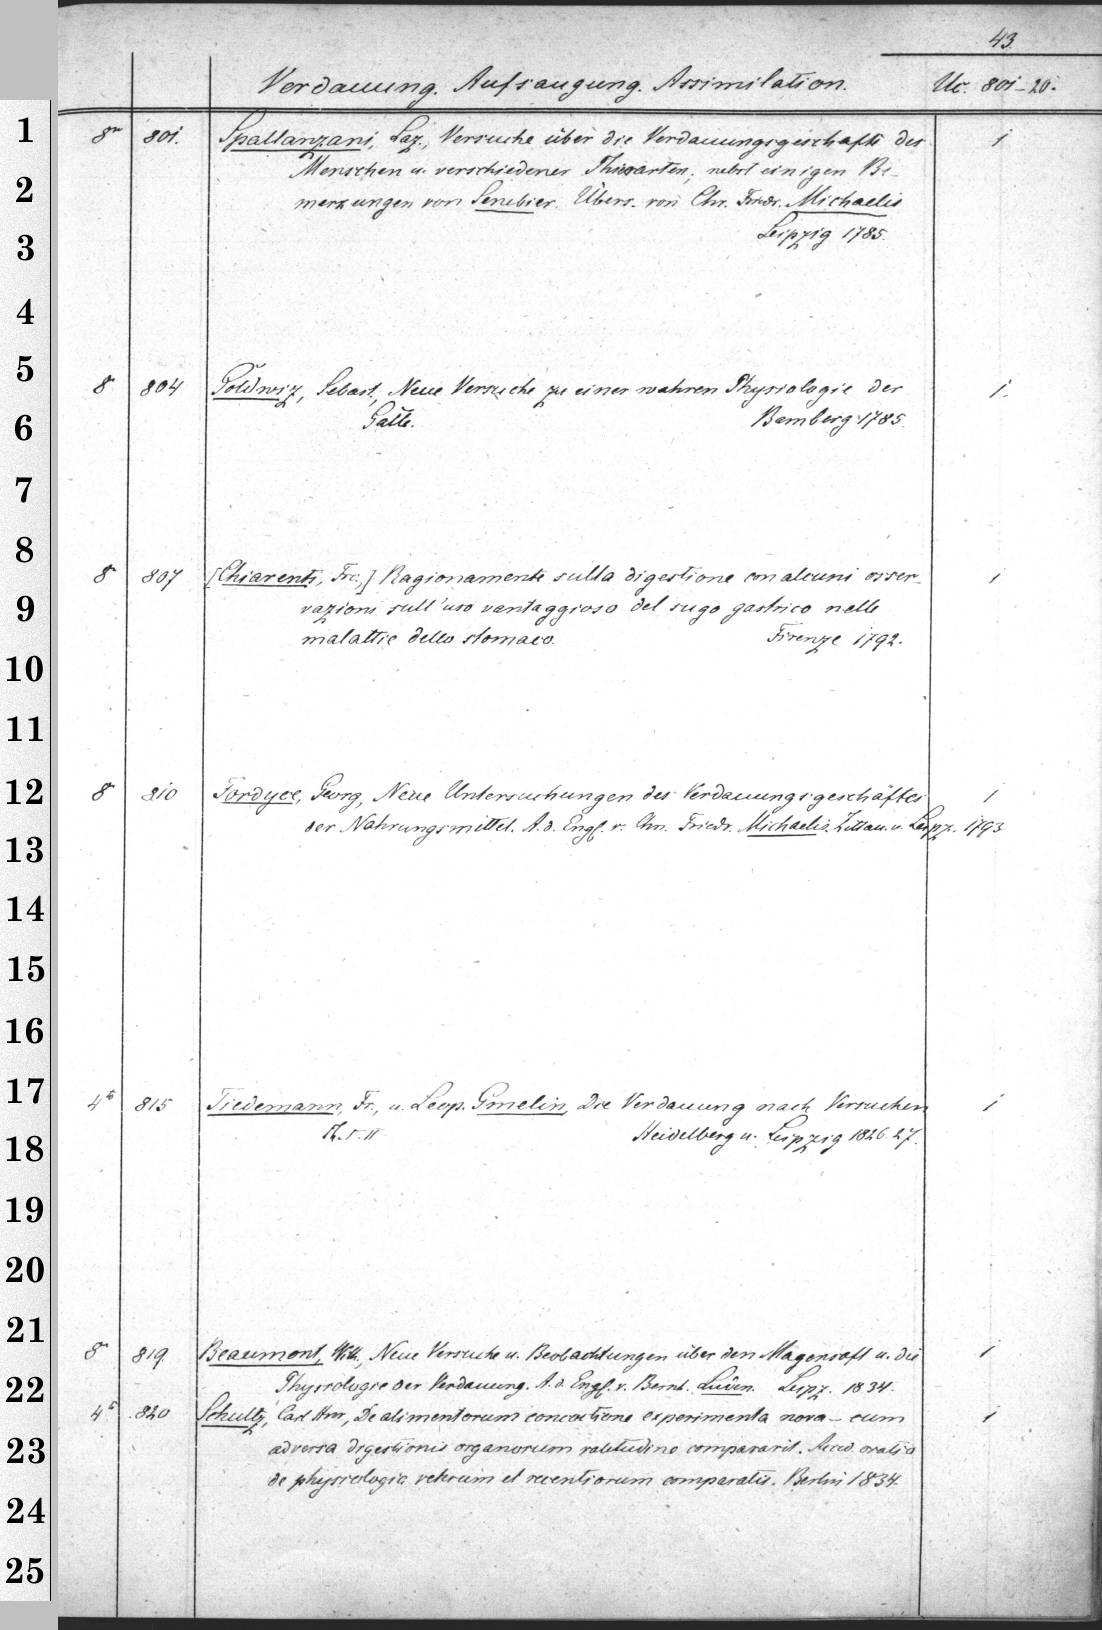 43.
Verdauung. Aufsaugung. Assimilation. Uc. 801-20.
1
8° 801. Spallanzani, Laz., Versuche über die Verdauungsgeschäfte des 1
2
Menschen u. verschiedener Thierarten; nebst einigen Be-
merkungen von Senebier. Übers. von Chr. Friedr. Michaelis
3
Leipzig 1785.
4
5
8° 804 Goldwiz, Sebast., Neue Versuche zu einer wahren Physiologie der 1.
6
Galle. Bamberg 1785.
7
8
8° 807 [Chiarenti, Frc.,] Ragionamento sulla digestione con alcuni osser- 1
9
vazioni sull'uso vantaggioso del sugo gastrico nelle
malattie dello stomaco. Firenze 1792.
10
11
12
8° 810 Fordyce, Georg, Neue Untersuchungen des Verdauungsgeschäftes 1
der Nahrungsmittel. A. d. Engl. v. Chr. Friedr. Michaelis. Zittau. u. Leipz. 1793
13
14
15
16
17
4° 815 Tiedemann, Fr., u. Leop. Gmelin, Die Verdauung nach Versuchen 1
Th. I. II Heidelberg u. Leipzig 1826. 27.
18
19
20
21
8° 819. Beaumont, Will., Neue Versuche u. Beobachtungen über den Magensaft u. die 1
22
Physiologie der Verdauung. A. d. Engl. v. Bernh. Luden. Leipz. 1834.
4° 820 Schultz, Carl Hnr., De alimentorum concoctione experimenta nova – cum 1
23
adversa digestionis organorum valetudine comparavit. Acced. oratio
de physiologia veterum et recentiorum comparatis. Berlin 1834.
24
25